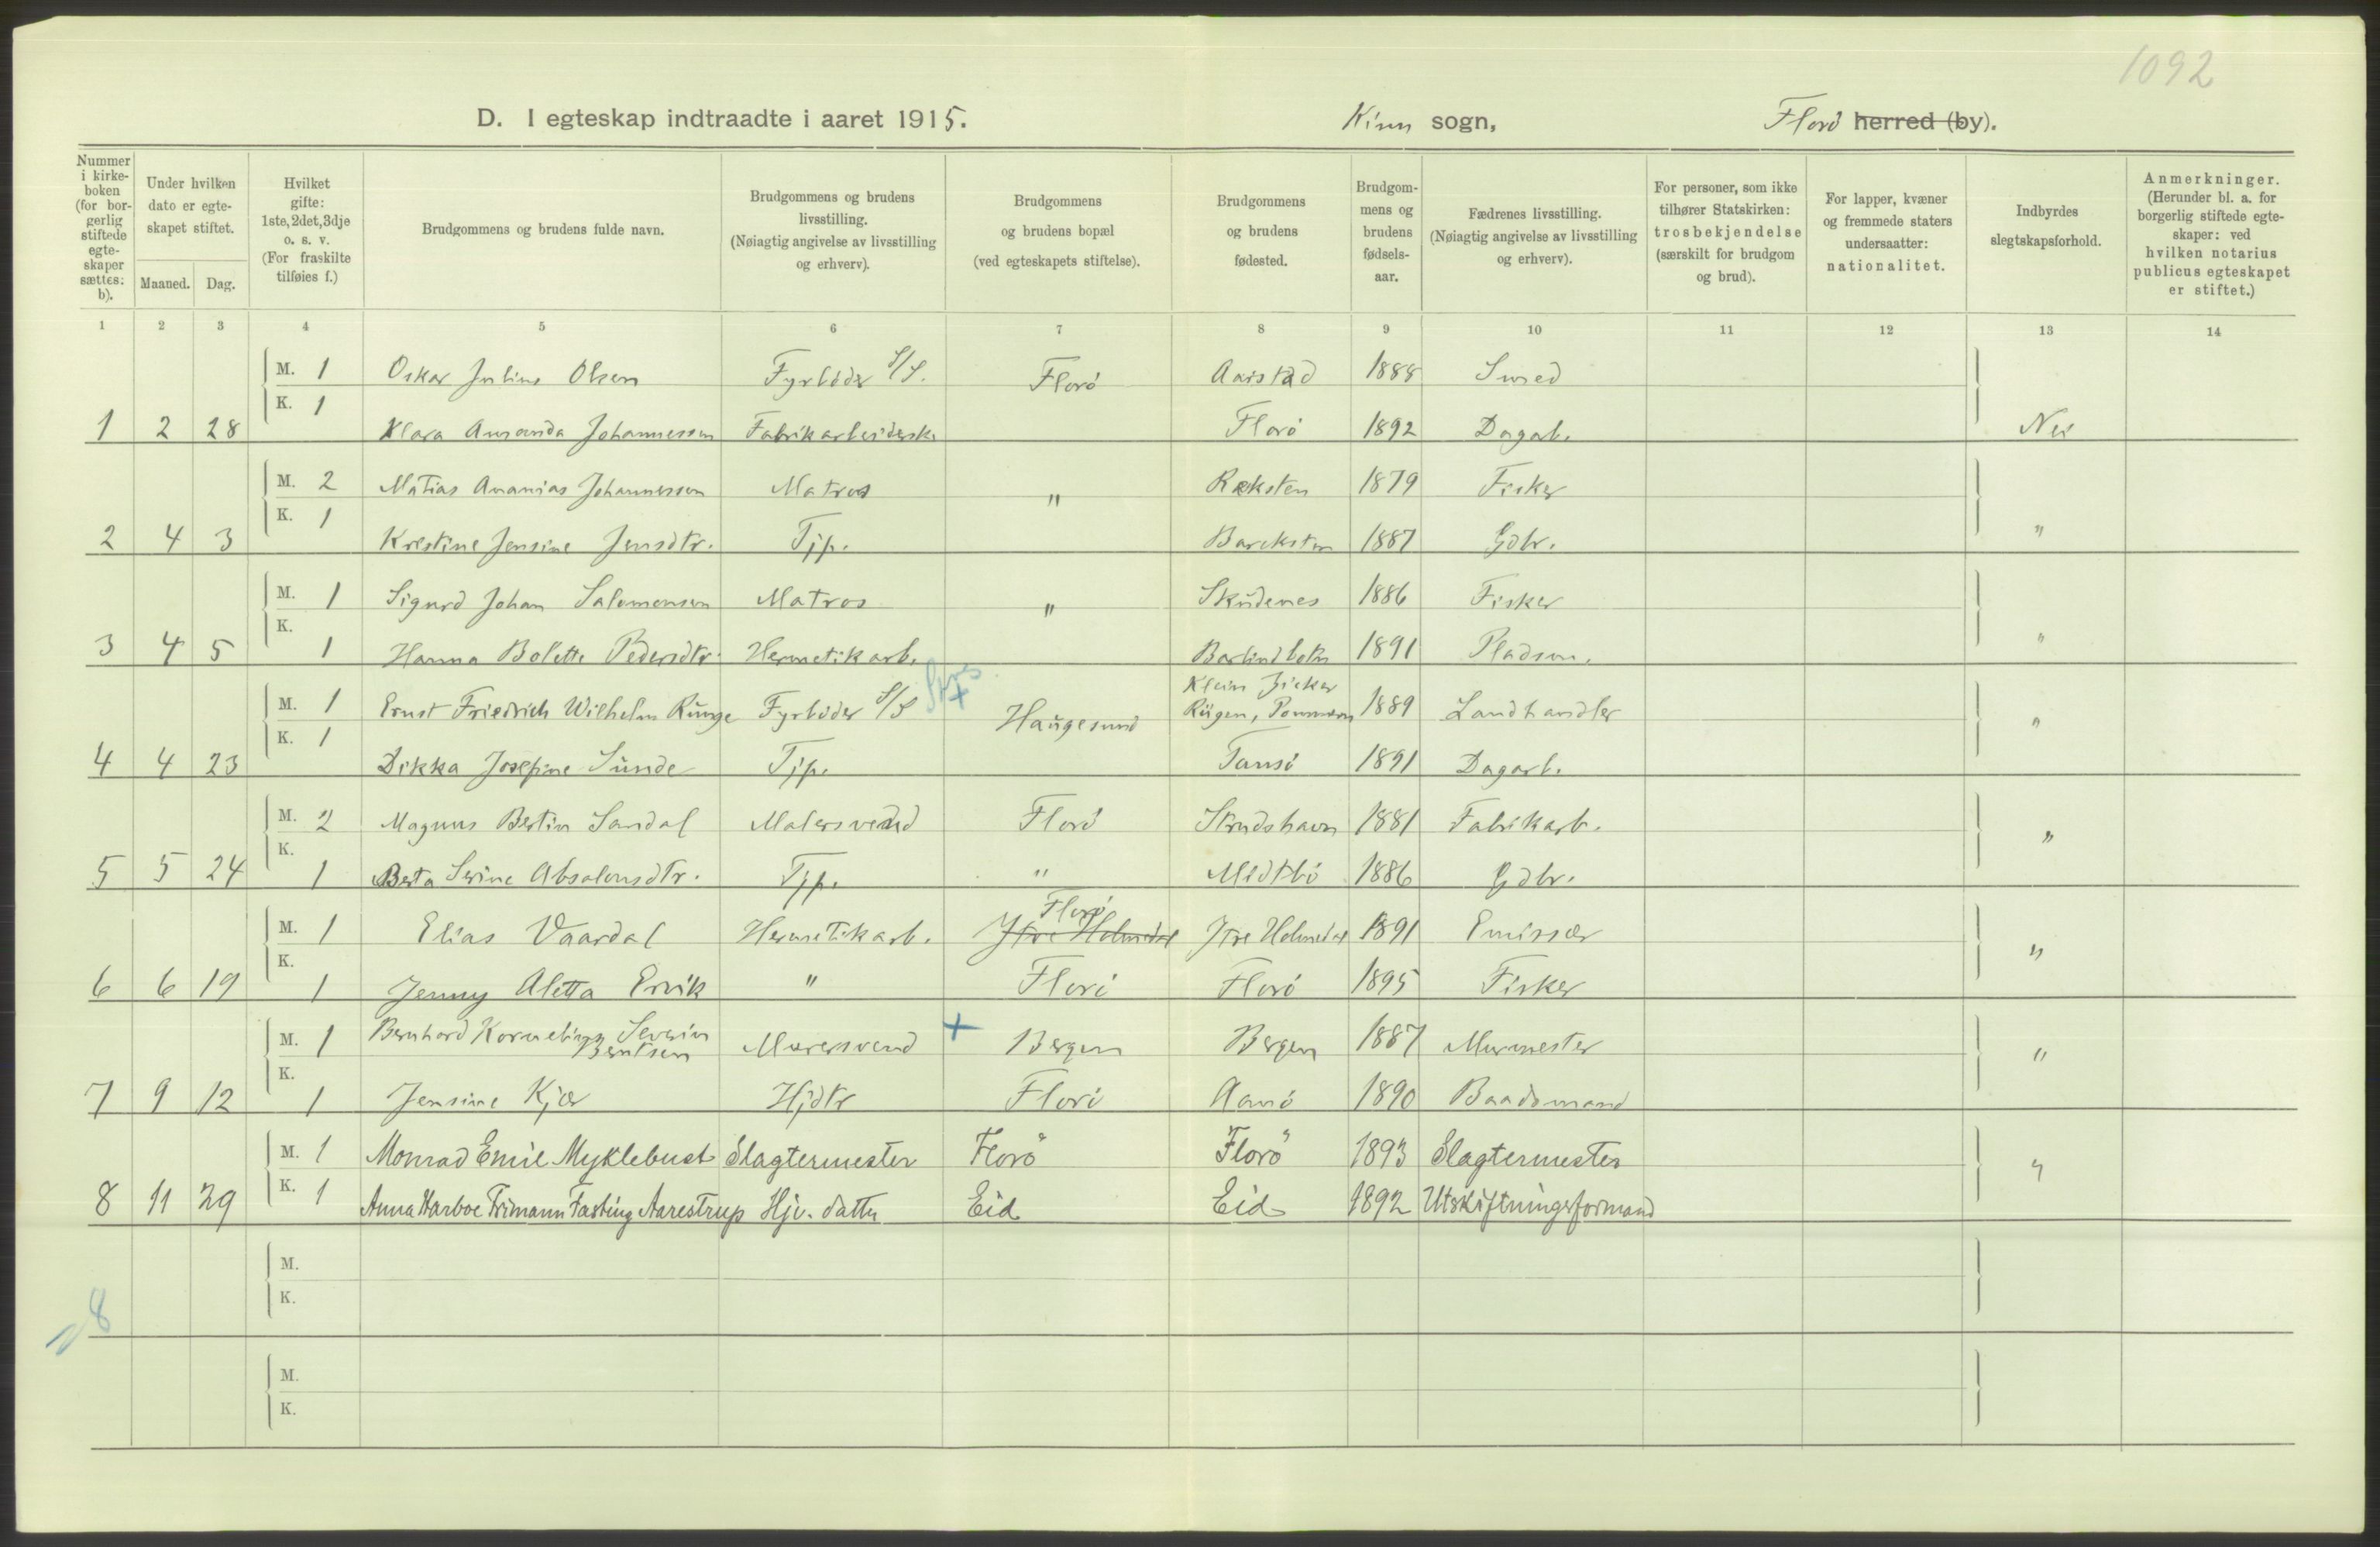 1092
D. I egteskap indtraadte i aaret 1915. Kinn sogn, Florö herred (by).
Nummer i kirke-boken (for bor-gerlig stiftede egte-skaper sættes: b).
Under hvilken dato er egte-skapet stiftet.
Maaned. Dag.
Hvilket gifte: 1ste, 2det, 3dje o. s. v. (For fraskilte tilføies f.)
Brudgommens og brudens fulde navn.
Brudgommens og brudens livsstilling. (Nøiagtig angivelse av livsstilling og erhverv).
Brudgommens og brudens bopæl (ved egteskapets stiftelse).
Brudgommens og brudens fødested.
Brudgom-mens og brudens fødsels-aar.
Fædrenes livsstilling. (Nøiagtig angivelse av livsstilling og erhverv).
For personer, som ikke tilhører Statskirken: trosbekjendelse (særskilt for brudgom og brud).
For lapper, kvæner og fremmede staters undersaatter: nationalitet.
Indbyrdes slegtskapsforhold.
Anmerkninger. (Herunder bl. a. for borgerlig stiftede egte-skaper: ved hvilken notarius publicus egteskapet er stiftet.)
1 2 3 4 5 6 7 8 9 10 11 12 13 14
M. 1 Oskar Julius Olsen Fyrböder S/S. Florö Aarstad 1888 Smed
1 2 28 K. 1 Klara Amanda Johannessen Fabrikarbeidersk. Florö 1892 Dagarb. Nei
M. 2 Matias Ananias Johannessen Matros " Ræksten 1879 Fisker
2 4 3 K. 1 Kristine Jensine Jensdtr. Tjp. Bareksten 1887 Gdbr. "
M. 1 Sigurd Johan Salomonsen Matros " Skudenes 1886 Fisker
3 4 5 K. 1 Hanna Bolette Pedersdtr. Hermetikarb. 1891 Pladsm. "
M. 1 Ernst Friedrich Wilhelm Runge Fyrböder S/S + Haugesund Klein Zicker Rügen, Pommern 1889 Landhandler "
4 4 23 K. 1 Dikka Josefine Sunde Tjp. Tansö 1891 Dagarb.
M. 2 Magnus Bertin Sandal Malersvend Florö 1881 Fabrikarb. "
5 5 24 K. 1 Berta Serine Absalonsdtr. Tjp. " Midtbö 1886 Gdbr.
Florö
M. 1 Elias Vaardal Hermetikarb. Ytre Holmedal Ytre Holmedal 1891 Emissær "
6 6 19 K. 1 Jenny Aletta Ervik " Florö Florö 1895 Fisker
M. 1 Bernhard Kornelius Severin Berntsen Murersvend + Bergen Bergen 1887 Murmester "
7 9 12 K. 1 Jensine Kjær Hjdtr Florö Aanö 1890 Baadsmand
M. 1 Monrad Emil Myklebust Slagtermester Florö Florö 1893 Slagtermester "
8 11 29 K. 1 Anna Harboe Frimann Fasting Aarestrup Hjv. datter Eid Eid 1892 Utskiftningsformand
M.
K.
8
M.
K.